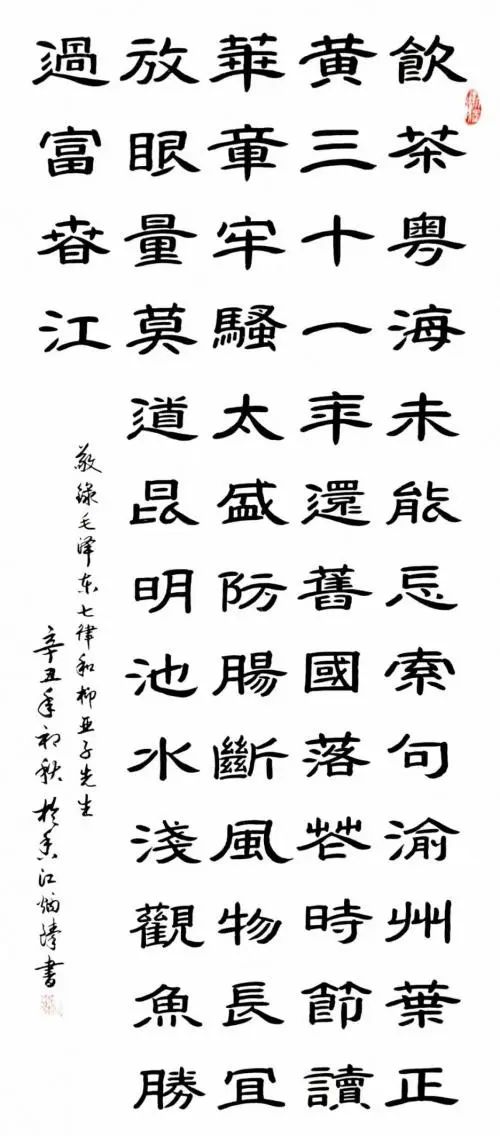 飲茶粵海未能忘索句渝州葉正
黄三十一年還舊國落花時節讀
華章牢騷太盛防腸斷風物長宜
放眼量莫道昆明池水淺觀魚勝
過富春江
敬録毛泽东七律和柳亚子先生
辛丑年初秋於香江炳書